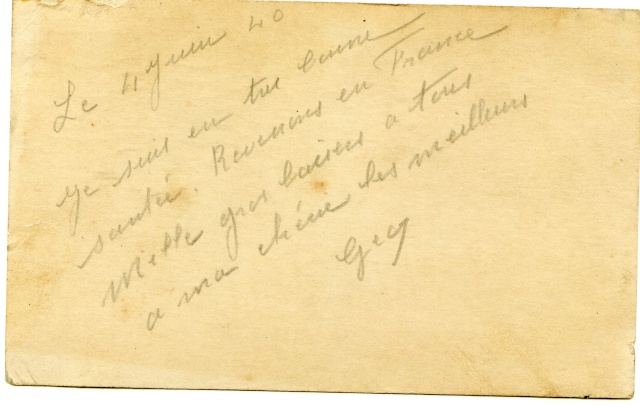 Le 4 Juin 40
Je suis en très bonne
santé. Revenons en France
Mille gros baisers a tous
a ma chérie les meilleurs
Gey